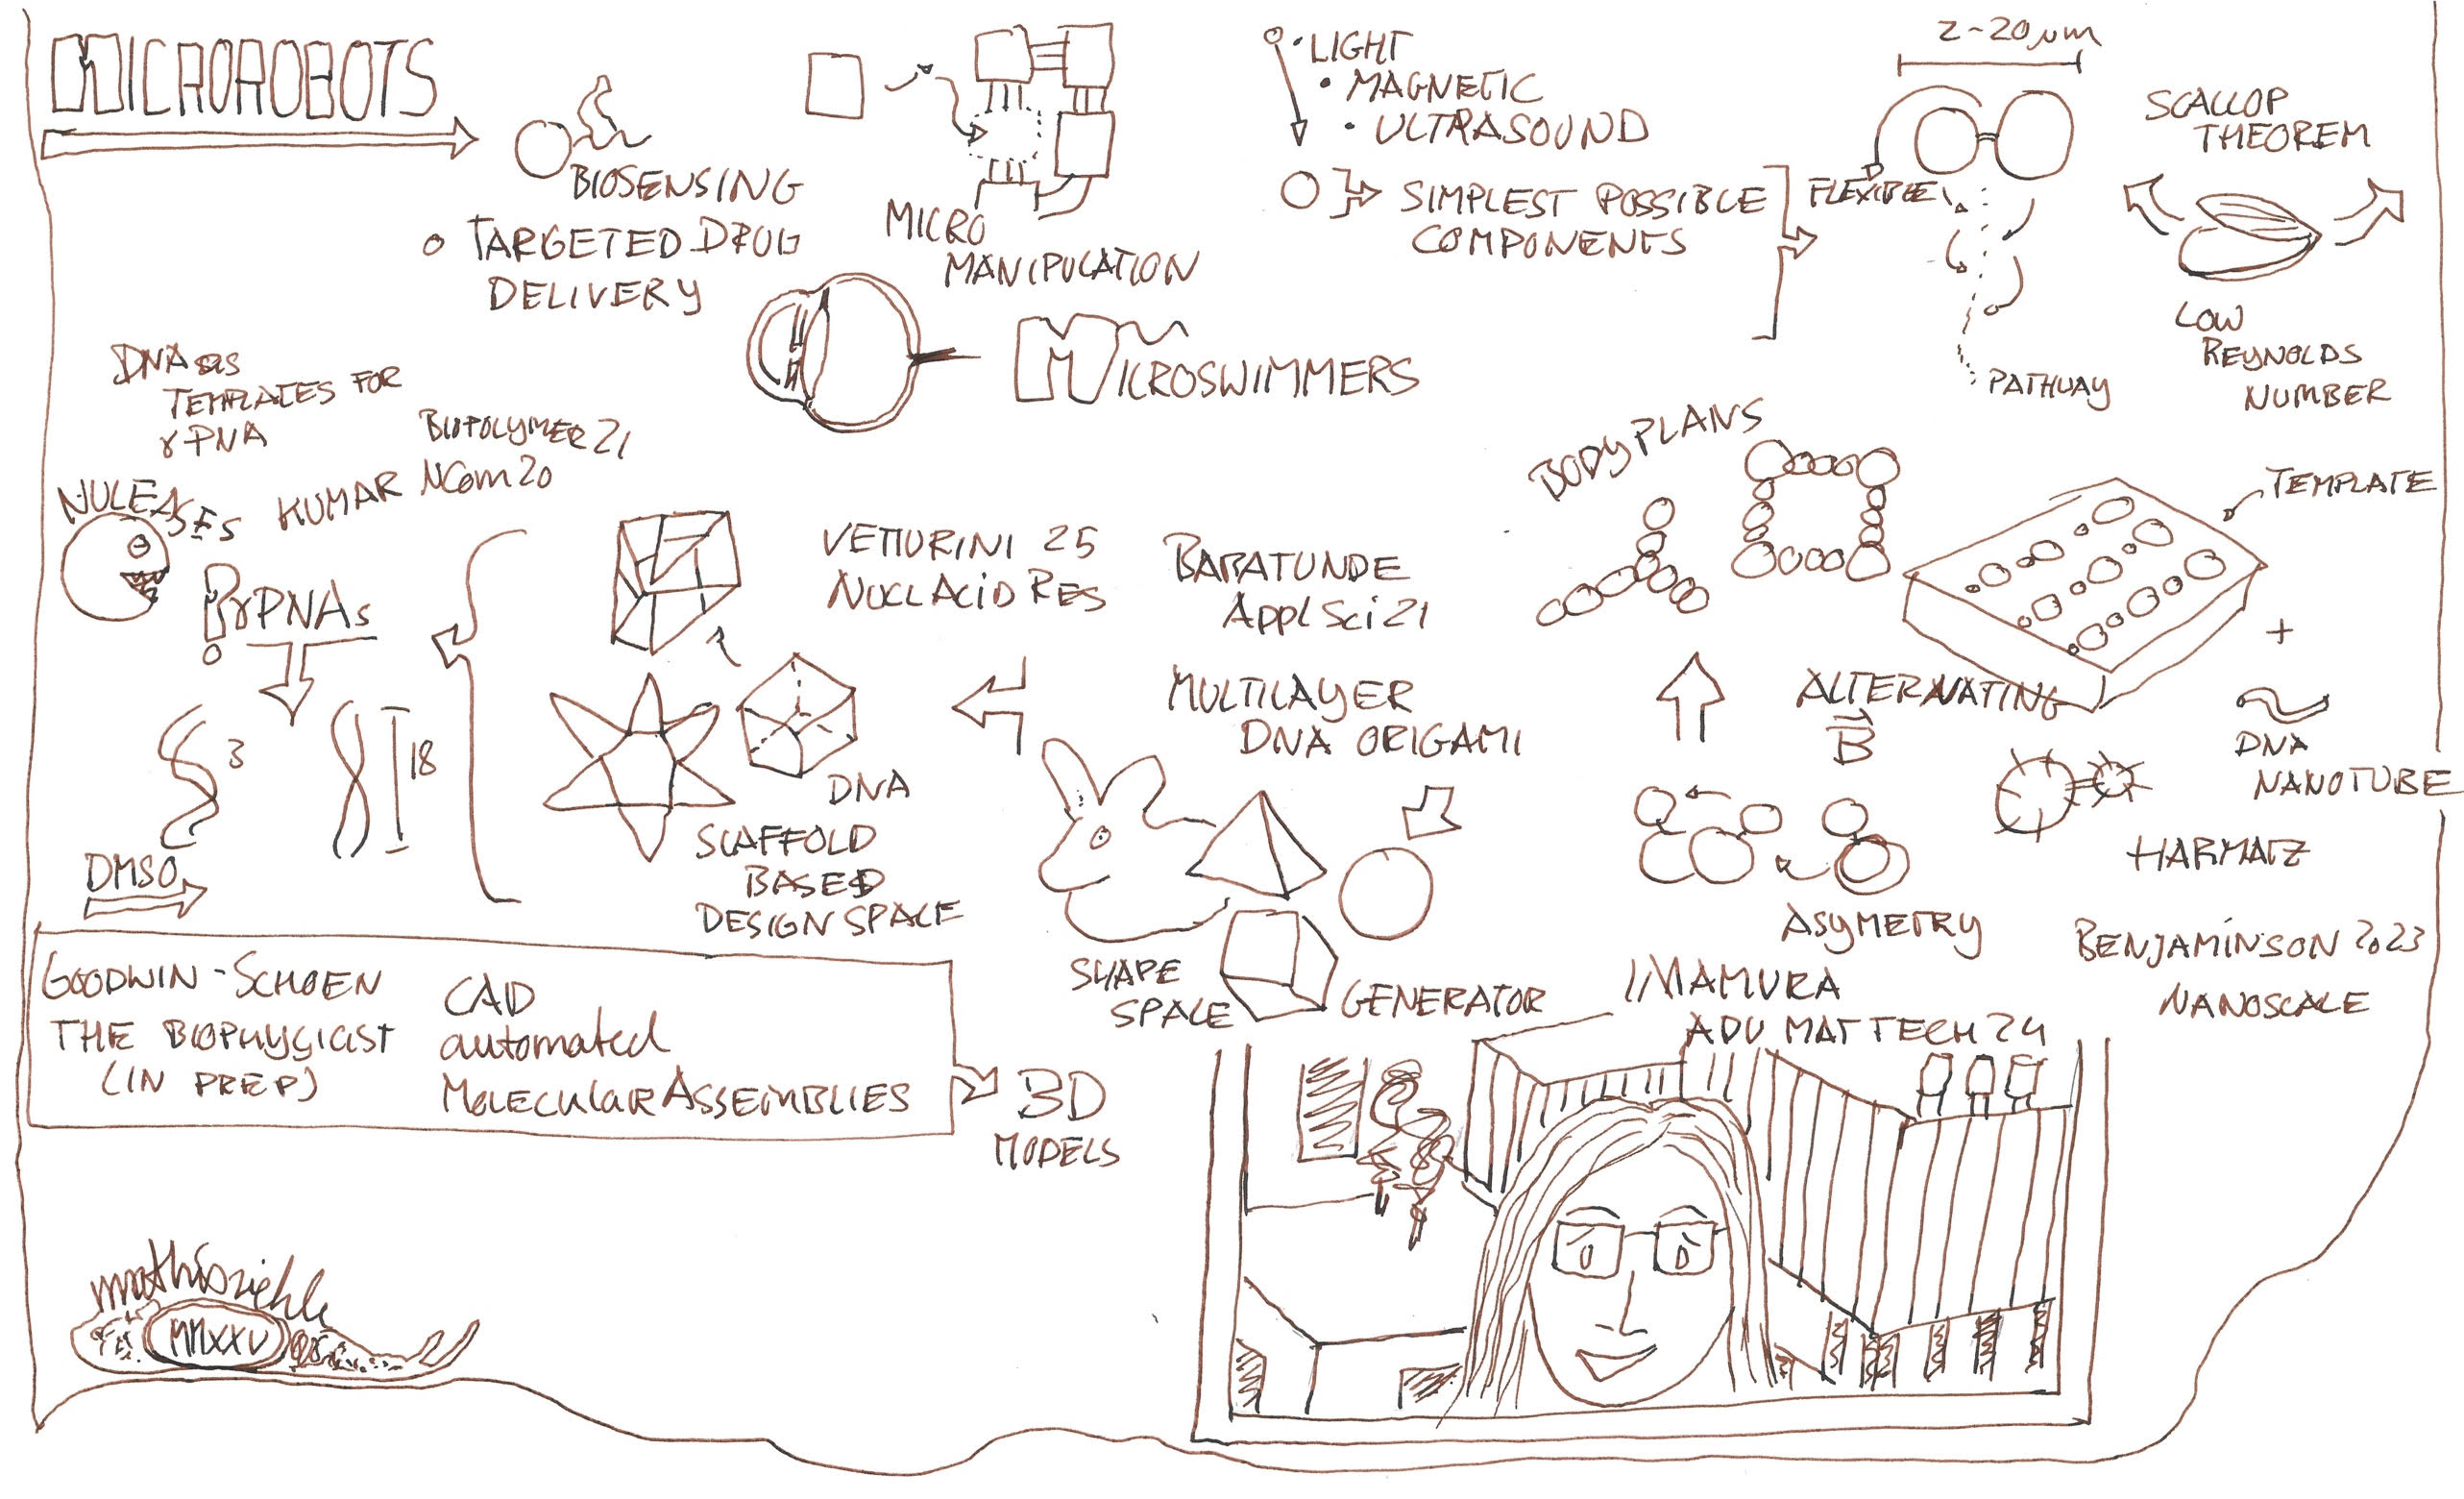 MICROROBOTS
BIOSENSING
TARGETED DRUG
DELIVERY
MICRO
MANIPULATION
• LIGHT
• MAGNETIC
• ULTRASOUND
SIMPLEST POSSIBLE
COMPONENTS
2-20 µm
FLEXIBLE
PATHWAY
SCALLOP
THEOREM
LOW
REYNOLDS
NUMBER
MICROSWIMMERS
BODYPLANS
TEMPLATE
+
DNA
NANOTUBE
HARMATZ
BENJAMINSON 2023
NANOSCALE
ALTERNATING
B
ASYMETRY
IMAMURA
ADV MAT TECH 24
BABATUNDE
Appl Sci 21
MULTILAYER
DNA ORIGAMI
SHAPE
SPACE
GENERATOR
VETTURINI 25
NUCL ACiD RES
DNA
SCAFFOLD
BASED
DESIGN SPACE
DNA as
TEMPLATES FOR
γPNA
BIOPOLYMER 21
KUMAR NCom 20
NULEASES
γPNAs
3
18
DMSO
GOODWIN-SCHOEN
THE BIOPHYSICIST
(IN PREP)
CAD
automated
MOLECULAR ASSEMBLIES
3D
MODELS
mathisriehle
MMXXV